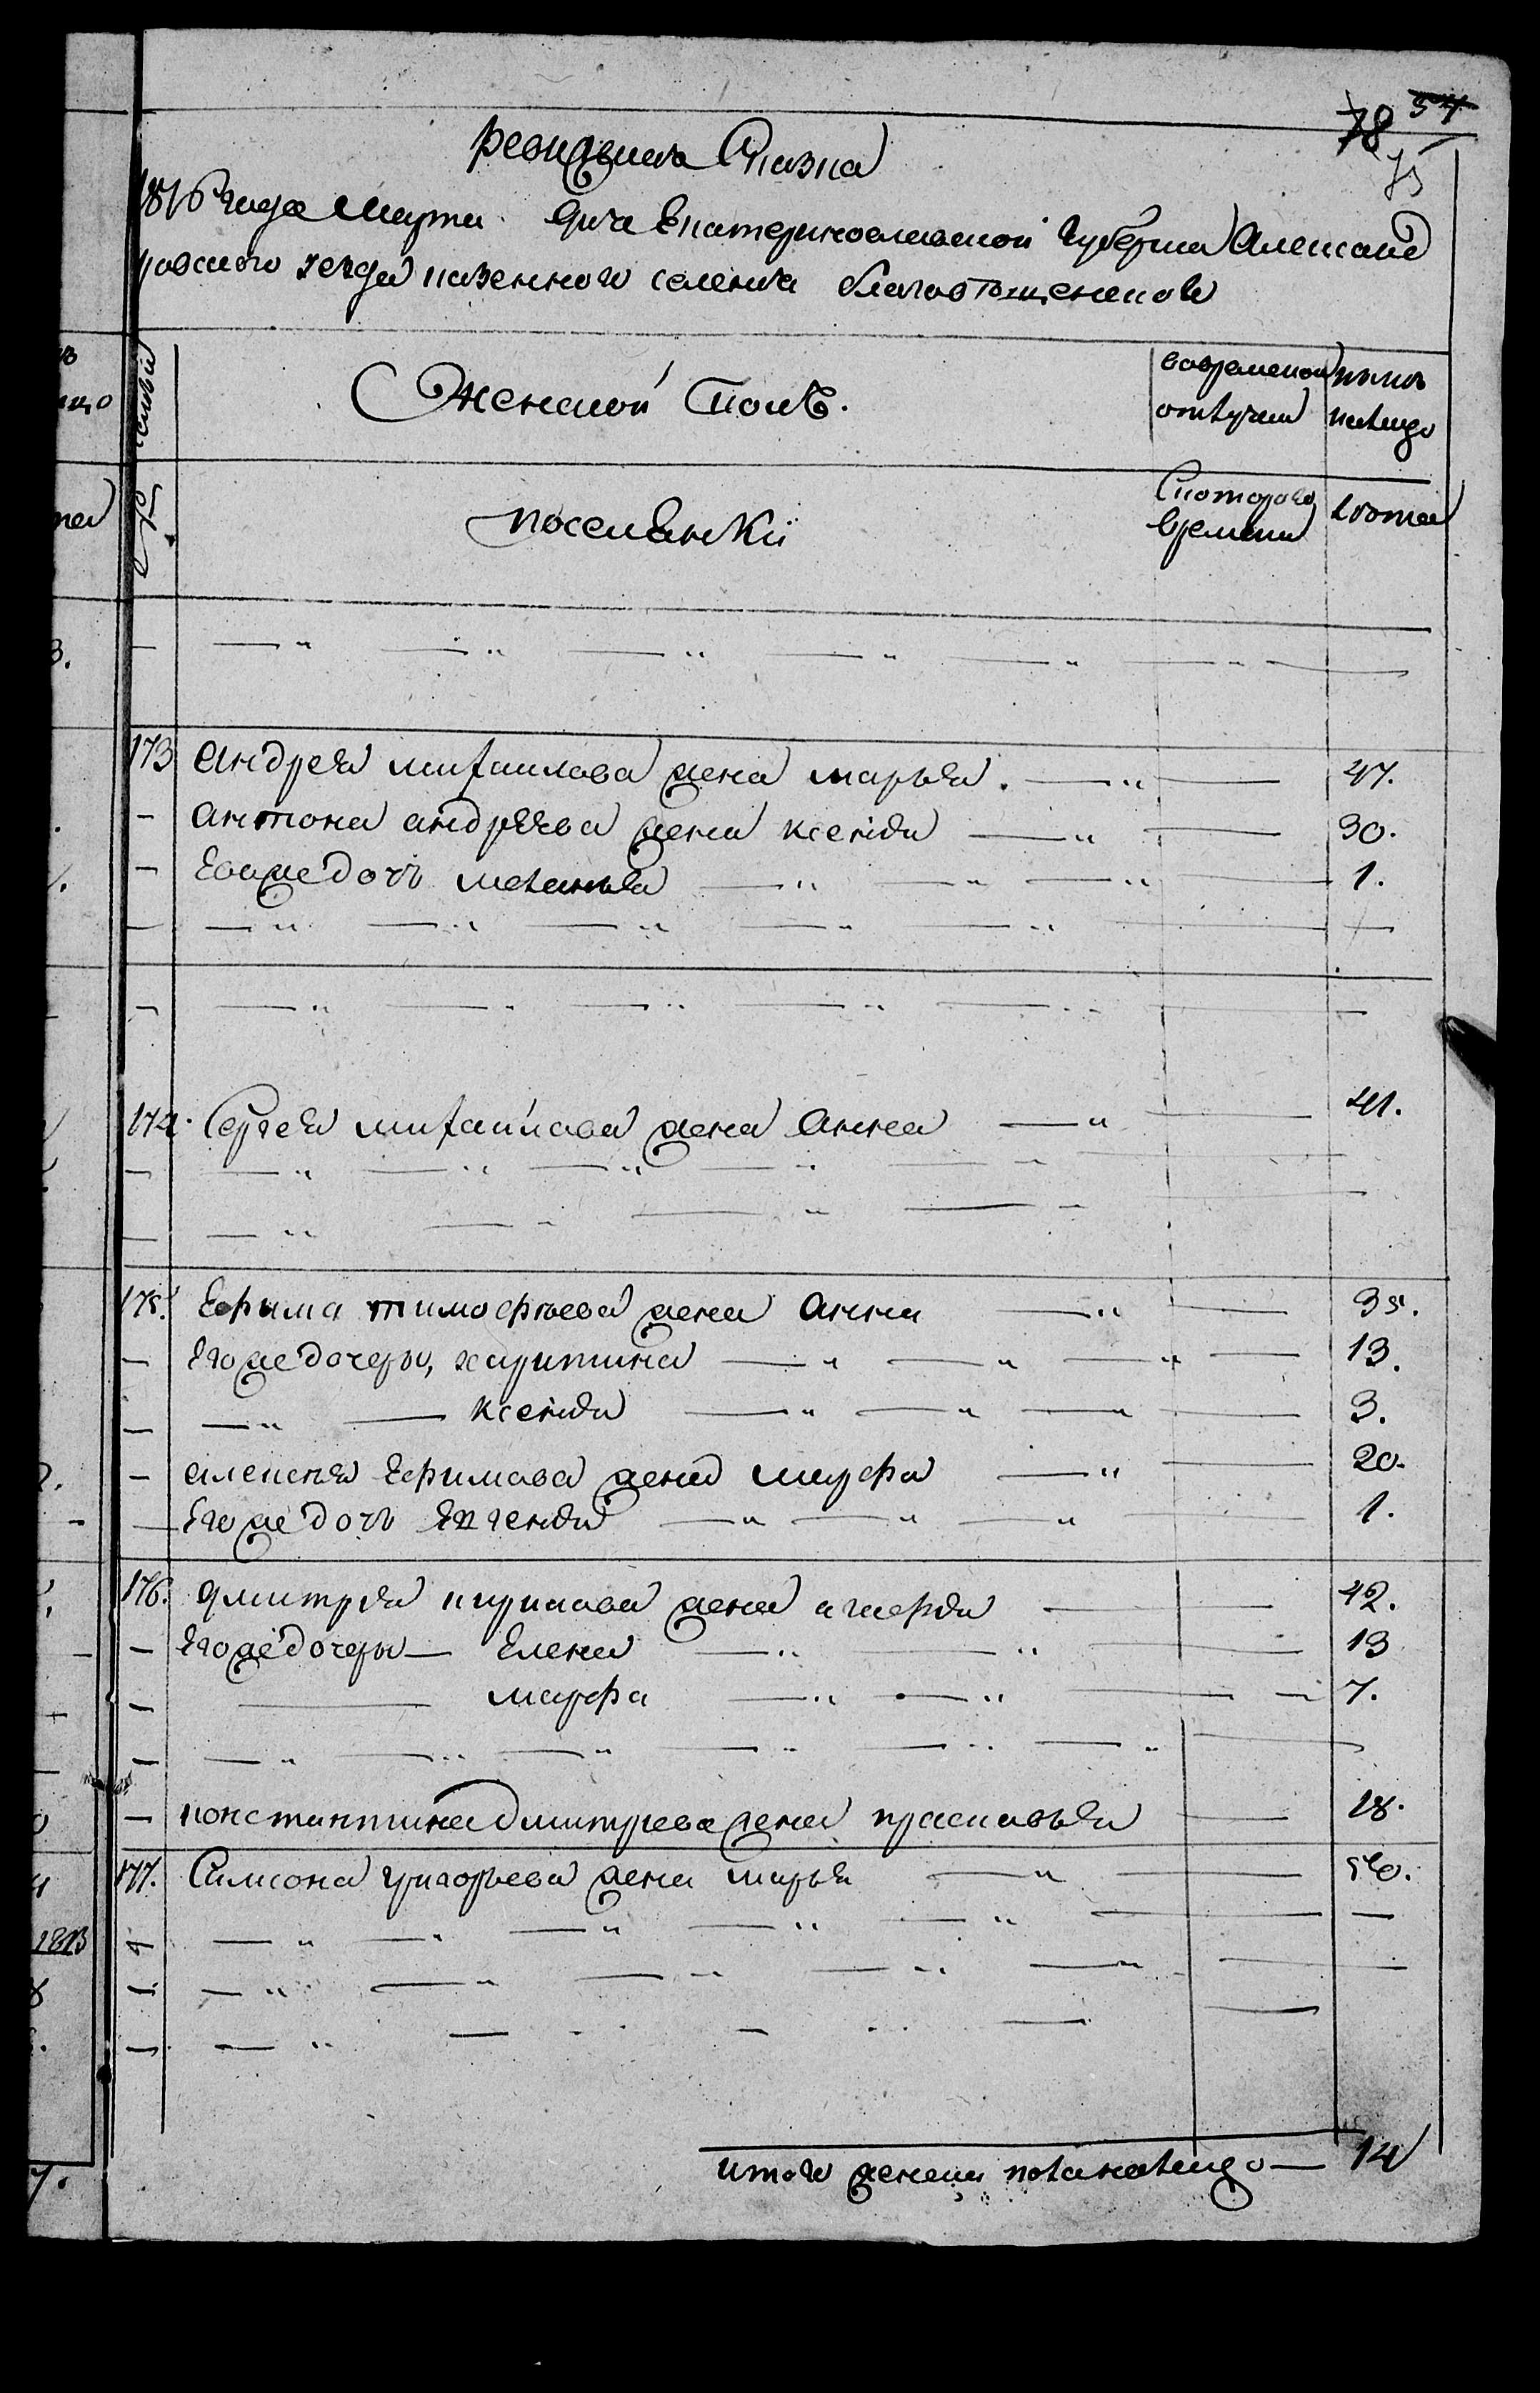 78 54
75
ревижская Сказка
1816 года Марта дня Екатеринославской Губернии Александ
ровского уезда казенного селения благовѣщенскова
Женской полъ.
вовременной
отлучки
нынѣ
налицо
поселянкй
Скоторого
времени
Лѣта
173 андрея михаилова жена марья. 47.
антона андрѣева жена ксения 30.
Евоже дочь меланья 1.
174. Сергея михайлова жена анна 41.
175. Ефима тимофѣева жена анна 35.
Егоже дочеры, харитина 13.
ксения 3.
алексѣя Ефимова жена марфа 20.
Егоже дочь Евгения 1.
176. дмитрия кирилова жена 42.
Егоже дочеры Елена 13
марфа 7.
константина дмитриева жена прасковья 18.
177. Самсона григорьева жена марья 50.
1813
итого женска пола налицо 14